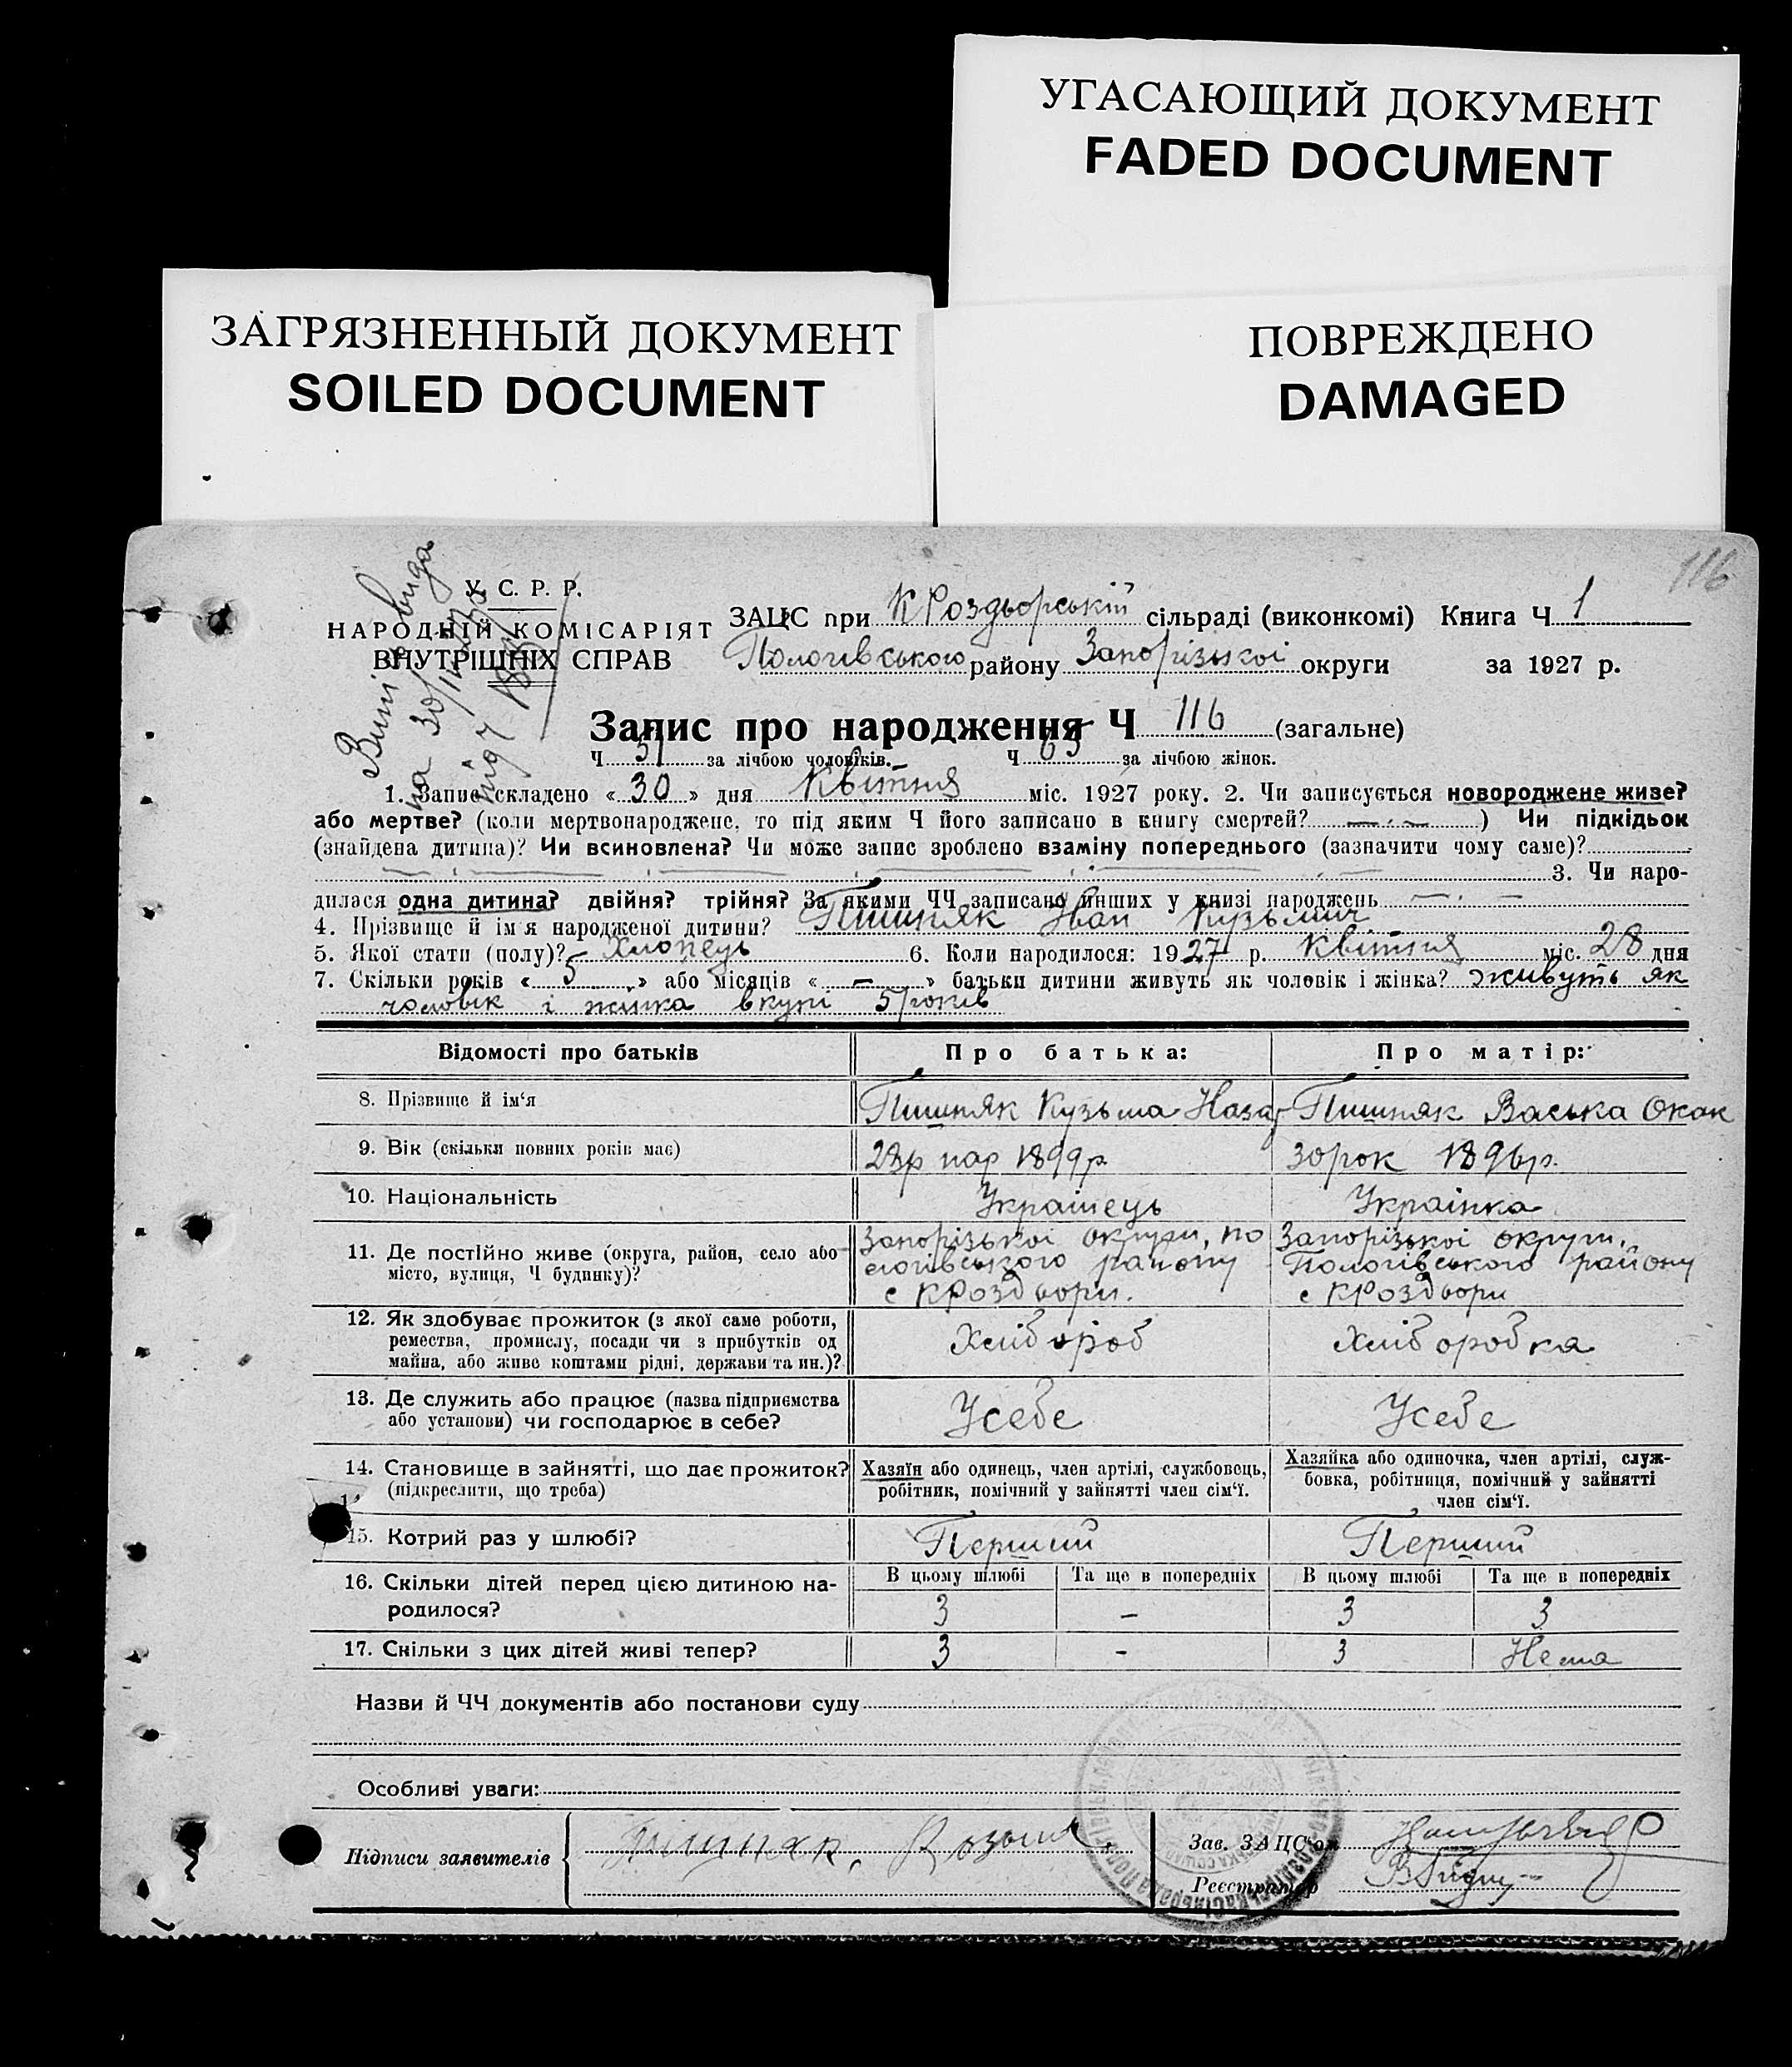 УГАСАЮЩИЙ ДОКУМЕНТ
FADED DOCUMENT
ЗАГРЯЗНЕННЫЙ ДОКУМЕНТ
SOILED DOCUMENT
ПОВРЕЖДЕНО
DAMAGED
116
У. С. Р. Р.
НАРОДНІЙ КОМІСАРІЯТ
ВНУТРІШНІХ СПРАВ
на 30/IV
ЗАЦС при КРоздорській сільраді (виконкомі) Книга Ч 1
Пологівського району Запорізькоі округи за 1927 р.
Запис про народження Ч 116 (загальне)
Ч 51 за лічбою чоловіків. Ч 65 за лічбою жінок.
1. Запис складено « 30 » дня квітня міс. 1927 року. 2. Чи записується новороджене живе?
або мертве? (коли мертвонароджене, то під яким Ч його записано в книгу смертей? ) Чи підкідьок
(знайдена дитина)? Чи всиновлена? Чи може запис зроблено взаміну попереднього (зазначити чому саме)?
3. Чи наро-
дилася одна дитина? двійня? трійня? За якими ЧЧ записано инших у книзі народжень
4. Прізвище й ім'я народженої дитини? Пишняк Іван Кузьмич
5. Якої стати (полу)? Хлопець 6. Коли народилося: 1927 р. квітня міс. 28 дня
7. Скільки років « 5 » або місяців « – » батьки дитини живуть як чоловік і жінка? живуть як
чоловік і жинка вкупі 5 років
Відомості про батьків Про батька: Про матір:
8. Прізвище й ім'я Пишняк Кузьма Назар Пишняк Васька
9. Вік (скільки повних років має) 28р нар 1899р. 30рок 1896р.
10. Національність Украінець Украінка
11. Де постійно живе (округа, район, село або місто, вулиця, Ч будинку)? Запорізькоі округи, по Запорізькоі округи,
логівського району Пологівського району
с КРоздори. с КРоздори
12. Як здобуває прожиток (з якої саме роботи,
ремества, промислу, посади чи з прибутків од Хлібороб Хліборобка
майна, або живе коштами рідні, держави та ин.)?
13. Де служить або працює (назва підприємства
або установи) чи господарює в себе? Усебе Усебе
14. Становище в зайнятті, що дає прожиток? Хазяїн або одинець, член артілі, службовець, Хазяйка або одиночка, член артілі, служ-
(підкреслити, що треба) робітник, помічний у зайнятті член сім'ї. бовка, робітниця, помічний у зайнятті
член сім'ї.
15. Котрий раз у шлюбі? Перший Перший
16. Скільки дітей перед цією дитиною на- В цьому шлюбі Та ще в попередніх В цьому шлюбі Та ще в попередніх
родилося? 3 – 3 3
17. Скільки з цих дітей живі тепер? 3 - 3 Нема
Назви й ЧЧ документів або постанови суду
Особливі уваги:
Підписи заявителів Пишняк. Зав. ЗАЦС'ом
Реєстратор